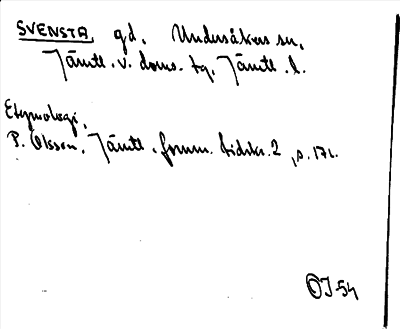 SVENSTA, gd, Undersåkers sn,
Jämtl. v. doms. tg, Jämtl. l.
Etymologi,
P. Olsson, Jämtl. fornm. tidskr. 2, s. 171.
OJ-54